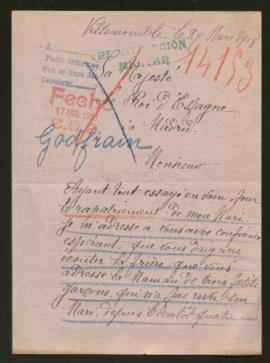 Villemomble le 29 Mars 1918
REDACCIÓN
MILITAR
14153
A
Pedir informes
Sa Majesté
Fecha
Le Roi d'Espagne
17 ABR. 191
à Madrid
Godfrain
Monsieur
Ayant tout essayé en vain, pour
le rapatriement de mon Mari,
je m'adresse à vous avec confiance
espérant, que vous daignerez
écouter la prière que vous
adresse la Maman de trois petits
garçons, qui n'a pas revu son
Mari, depuis bientôt quatre ans